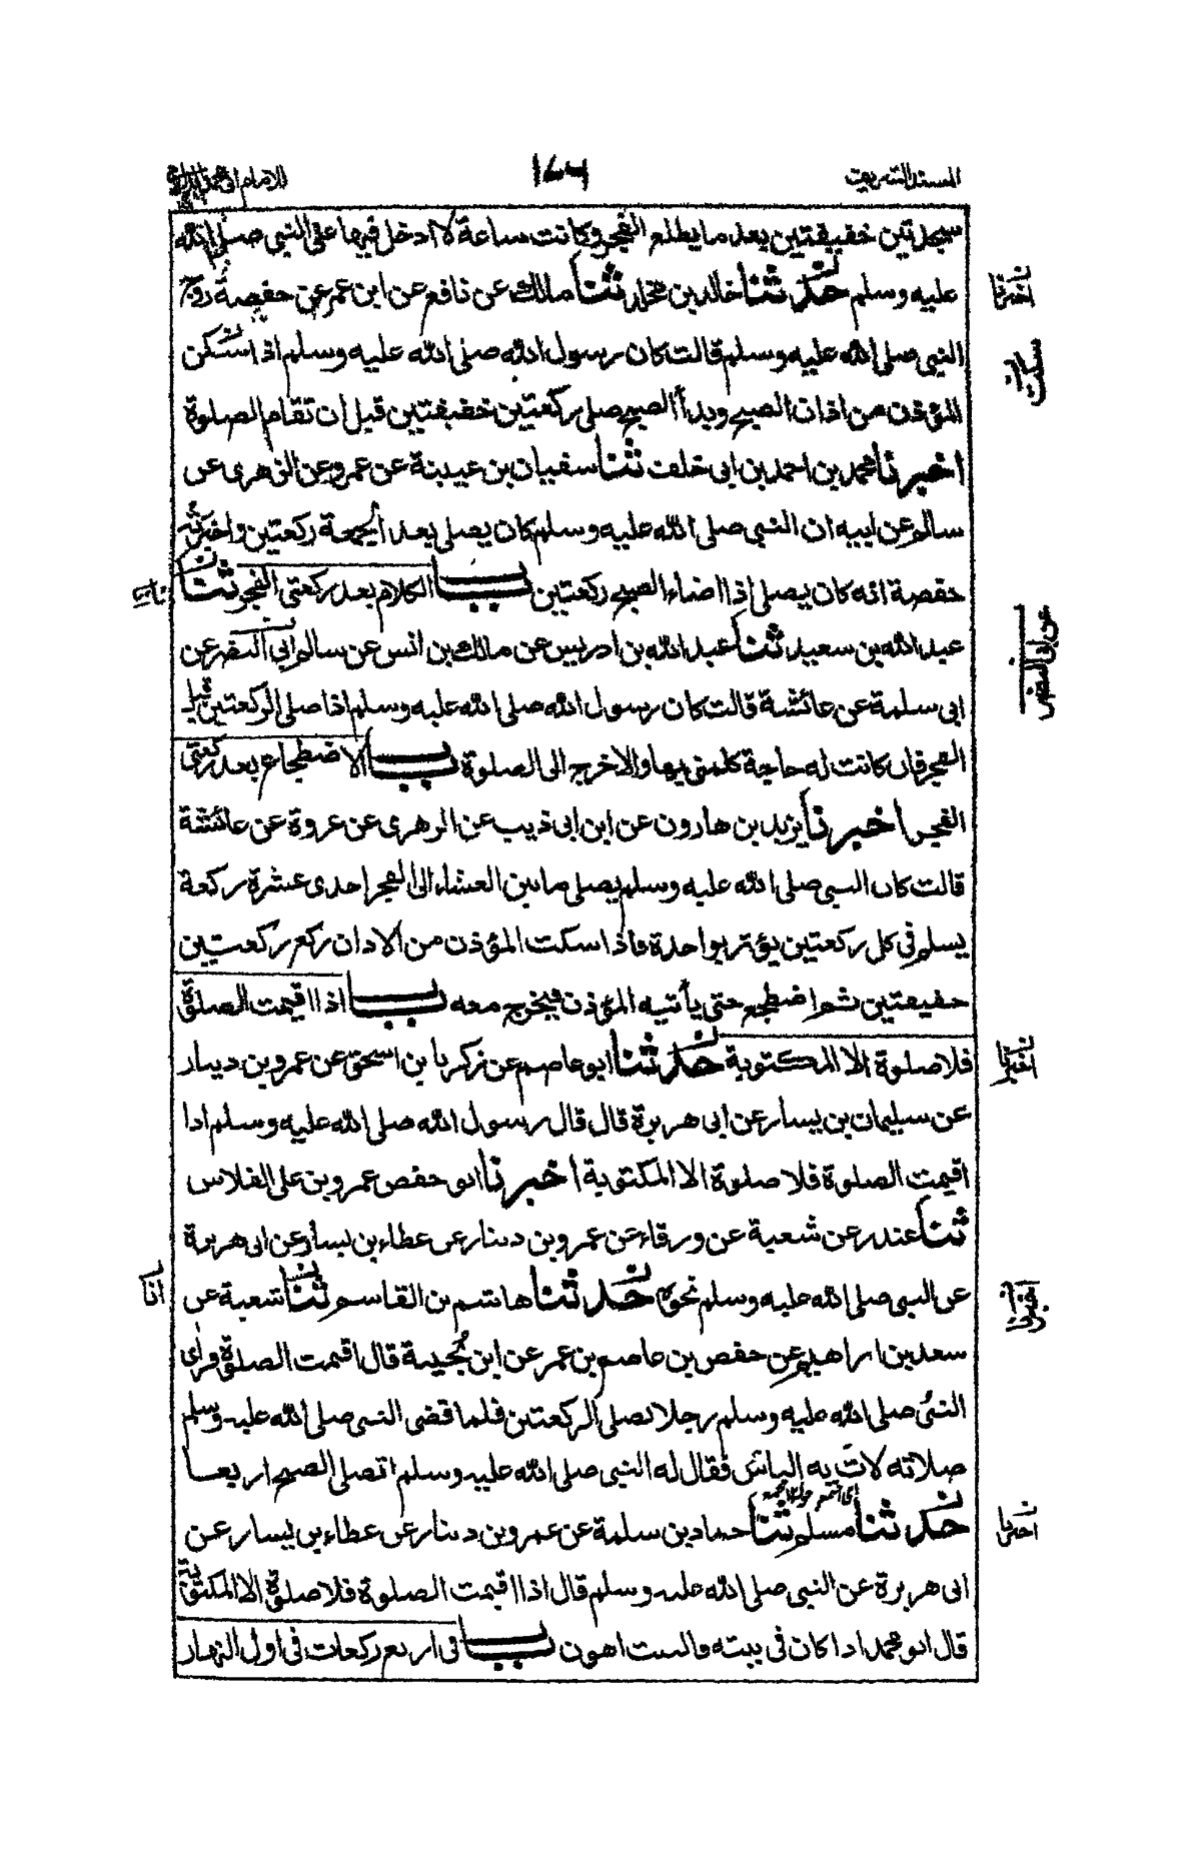 المسند الشريف
١٧٦
للامام ابى محمد الدارمى
سجدتين خفيفتين بعد ما يطلع الفجر وكانت ساعة لا ادخل فيها على النبى صلى الله
عليه وسلم حدثنا خالد بن مخلد ثنا مالك عن نافع عن ابن عمر عن حفصة زوج
النبى صلى الله عليه وسلم قالت كان رسول الله صلى الله عليه وسلم اذا سكن
المؤذن من اذان الصبح وبدأ الصبح صلى ركعتين خفيفتين قبل ان تقام الصلوة
اخبرنا محمد بن احمد بن ابى خلف ثنا سفيان بن عيينة عن عمرو عن الزهرى عن
سالم عن ابيه ان النبى صلى الله عليه وسلم كان يصلى بعد الجمعة ركعتين واخبرتنى
حفصة انه كان يصلى اذا اضاء الصبح ركعتين باب الكلام بعد ركعتى الفجر ثنا
عبد الله بن سعيد ثنا عبد الله بن ادريس عن مالك بن انس عن سالم ابى النضر عن
ابى سلمة عن عائشة قالت كان رسول الله صلى الله عليه وسلم اذا صلى الركعتين قبل
الفجر فان كانت له حاجة كلمنى بها والا خرج الى الصلوة باب الاضطجاع بعد ركعتى
الفجر اخبرنا يزيد بن هارون عن ابن ابى ذيب عن الزهرى عن عروة عن عائشة
قالت كان النبى صلى الله عليه وسلم يصلى ما بين العشاء الى الفجر احدى عشرة ركعة
يسلم فى كل ركعتين يؤتر بواحدة فاذا سكت المؤذن من الاذان ركع ركعتين
خفيفتين ثم اضطجع حتى يأتيه المؤذن فيخرج معه باب اذا اقيمت الصلوة
فلا صلوة الا المكتوبة حدثنا ابو عاصم عن زكريا بن اسحق عن عمرو بن دينار
عن سليمان بن يسار عن ابى هريرة قال قال رسول الله صلى الله عليه وسلم اذا
اقيمت الصلوة فلا صلوة الا المكتوبة اخبرنا ابو حفص عمرو بن على الفلاس
ثنا غندر عن شعبة عن ورقاء عن عمرو بن دينار عن عطاء بن يسار عن ابى هريرة
عن النبى صلى الله عليه وسلم نحوه حدثنا هاشم بن القاسم ثنا شعبة عن
سعد بن ابراهيم عن حفص بن عاصم بن عمر عن ابن بُحينة قال اقيمت الصلوة فرأى
النبى صلى الله عليه وسلم رجلا يصلى الركعتين فلما قضى النبى صلى الله عليه وسلم
صلاته لاث به الناس فقال له النبى صلى الله عليه وسلم اتصلى الصبح اربعا
حدثنا مسلم ثنا حماد بن سلمة عن عمرو بن دينار عن عطاء بن يسار عن
ابى هريرة عن النبى صلى الله عليه وسلم قال اذا اقيمت الصلوة فلا صلوة الا المكتوبة
قال ابو محمد اذا كان فى بيته فالبيت اهون باب فى اربع ركعات فى اول النهار
اخبرنا
سكت
عن ابى النضر
اخبرنا
اخبرنا
اخبرنا
انا